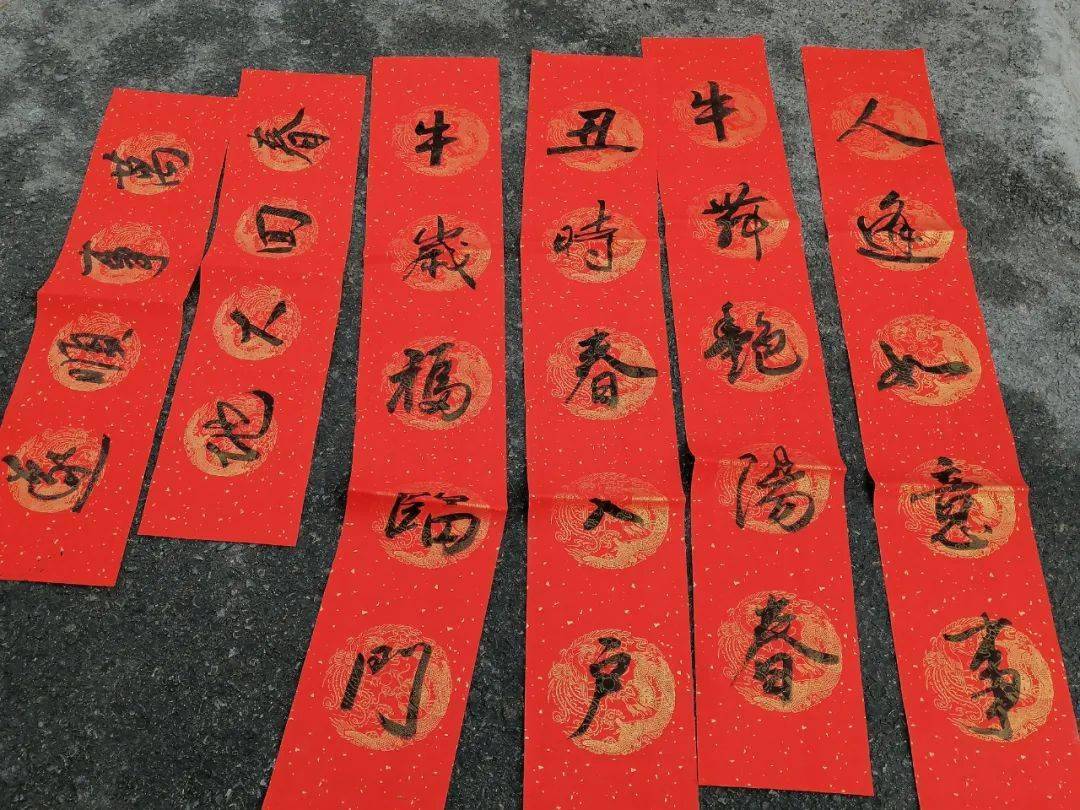 人逢如意事
牛舞艷陽春
丑時春入户
牛歲福臨門
春回大地
萬事順達